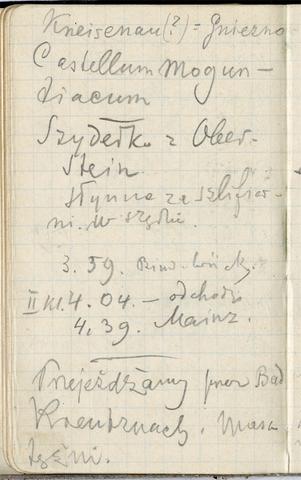 Kneisenau(?) = Gniezno
Castellum Mogun-
tiacum
Szydełko z Ober-
stein
słynne ze szlifier-
ni. w
3.59.
II kl. 4.04. – odchodzi
4.39. Mainz.
Przejeżdżamy przez Bad
Kreutznach. Masa
tężni.